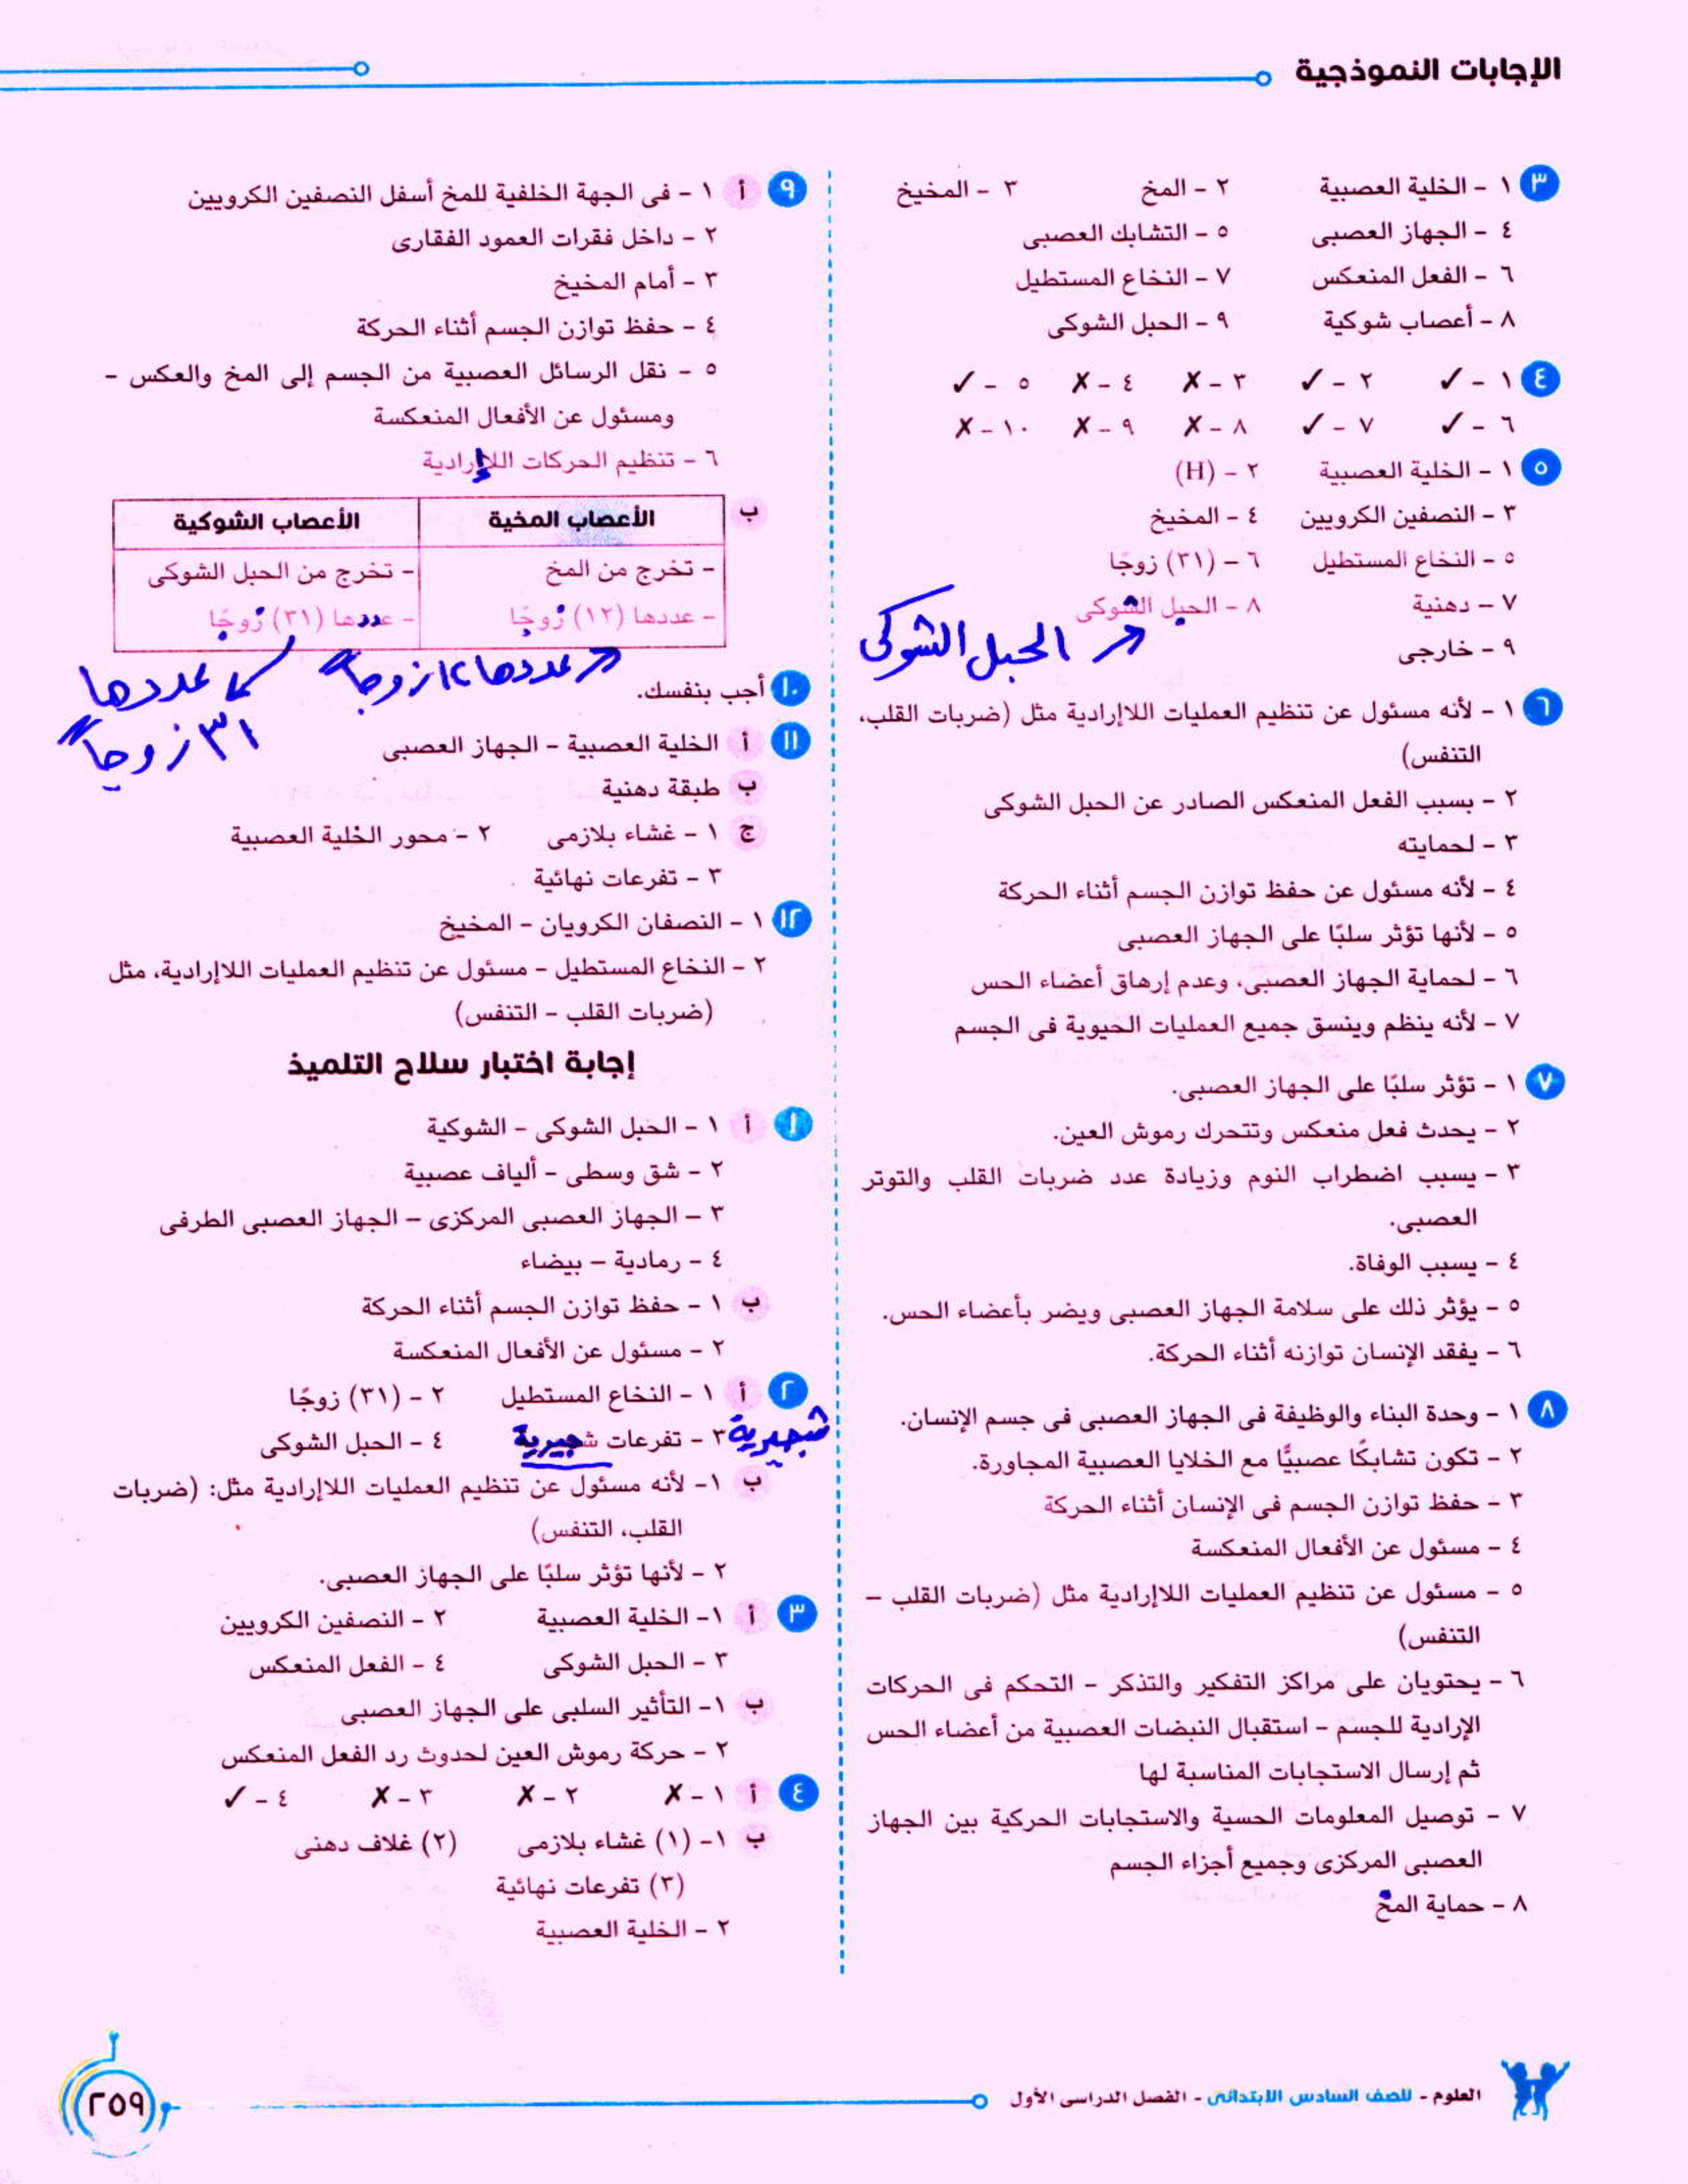 الإجابات النموذجية
٣ ١ - الخلية العصبية ٢ - المخ ٣ - المخيخ
٤ - الجهاز العصبى ٥ - التشابك العصبى
٦ - الفعل المنعكس ٧ - النخاع المستطيل
٨ - أعصاب شوكية ٩ - الحبل الشوكى
٤ ١ - ✓ ٢ - ✓ ٣ - ✗ ٤ - ✗ ٥ - ✓
٦ - ✓ ٧ - ✓ ٨ - ✗ ٩ - ✗ ١٠ - ✗
٥ ١ - الخلية العصبية ٢ - (H)
٣ - النصفين الكرويين ٤ - المخيخ
٥ - النخاع المستطيل ٦ - (٣١) زوجًا
٧ - دهنية ٨ - الحبل الشوكى
الحبل الشوكى
٩ - خارجى
٦ ١ - لأنه مسئول عن تنظيم العمليات اللاإرادية مثل (ضربات القلب،
التنفس)
٢ - بسبب الفعل المنعكس الصادر عن الحبل الشوكى
٣ - لحمايته
٤ - لأنه مسئول عن حفظ توازن الجسم أثناء الحركة
٥ - لأنها تؤثر سلبًا على الجهاز العصبى
٦ - لحماية الجهاز العصبى، وعدم إرهاق أعضاء الحس
٧ - لأنه ينظم وينسق جميع العمليات الحيوية فى الجسم
٧ ١ - تؤثر سلبًا على الجهاز العصبى.
٢ - يحدث فعل منعكس وتتحرك رموش العين.
٣ - يسبب اضطراب النوم وزيادة عدد ضربات القلب والتوتر
العصبى.
٤ - يسبب الوفاة.
٥ - يؤثر ذلك على سلامة الجهاز العصبى ويضر بأعضاء الحس.
٦ - يفقد الإنسان توازنه أثناء الحركة.
٨ ١ - وحدة البناء والوظيفة فى الجهاز العصبى فى جسم الإنسان.
٢ - تكون تشابكًا عصبيًّا مع الخلايا العصبية المجاورة.
٣ - حفظ توازن الجسم فى الإنسان أثناء الحركة
٤ - مسئول عن الأفعال المنعكسة
٥ - مسئول عن تنظيم العمليات اللاإرادية مثل (ضربات القلب -
التنفس)
٦ - يحتويان على مراكز التفكير والتذكر - التحكم فى الحركات
الإرادية للجسم - استقبال النبضات العصبية من أعضاء الحس
ثم إرسال الاستجابات المناسبة لها
٧ - توصيل المعلومات الحسية والاستجابات الحركية بين الجهاز
العصبى المركزى وجميع أجزاء الجسم
٨ - حماية المخ
٩ أ ١ - فى الجهة الخلفية للمخ أسفل النصفين الكرويين
٢ - داخل فقرات العمود الفقارى
٣ - أمام المخيخ
٤ - حفظ توازن الجسم أثناء الحركة
٥ - نقل الرسائل العصبية من الجسم إلى المخ والعكس -
ومسئول عن الأفعال المنعكسة
٦ - تنظيم الحركات اللاإرادية
ب الأعصاب المخية الأعصاب الشوكية
- تخرج من المخ - تخرج من الحبل الشوكى
- عددها (١٢) زوجًا - عددها (٣١) زوجًا
عددها ١٢ زوجاً
عددها
٣١ زوجاً
١٠ أجب بنفسك.
١١ أ الخلية العصبية - الجهاز العصبى
ب طبقة دهنية
ج ١ - غشاء بلازمى ٢ - محور الخلية العصبية
٣ - تفرعات نهائية
١٢ ١ - النصفان الكرويان - المخيخ
٢ - النخاع المستطيل - مسئول عن تنظيم العمليات اللاإرادية، مثل
(ضربات القلب - التنفس)
إجابة اختبار سلاح التلميذ
١ أ ١ - الحبل الشوكى - الشوكية
٢ - شق وسطى - ألياف عصبية
٣ - الجهاز العصبى المركزى - الجهاز العصبى الطرفى
٤ - رمادية - بيضاء
ب ١ - حفظ توازن الجسم أثناء الحركة
٢ - مسئول عن الأفعال المنعكسة
٢ أ ١ - النخاع المستطيل ٢ - (٣١) زوجًا
شجيرية ٣ - تفرعات شجيرية ٤ - الحبل الشوكى
ب ١- لأنه مسئول عن تنظيم العمليات اللاإرادية مثل: (ضربات
القلب، التنفس)
٢ - لأنها تؤثر سلبًا على الجهاز العصبى.
٣ أ ١- الخلية العصبية ٢ - النصفين الكرويين
٣ - الحبل الشوكى ٤ - الفعل المنعكس
ب ١- التأثير السلبى على الجهاز العصبى
٢ - حركة رموش العين لحدوث رد الفعل المنعكس
٤ أ ١ - ✗ ٢ - ✗ ٣ - ✗ ٤ - ✓
ب ١- (١) غشاء بلازمى (٢) غلاف دهنى
(٣) تفرعات نهائية
٢ - الخلية العصبية
العلوم - للصف السادس الابتدائى - الفصل الدراسى الأول
٢٥٩